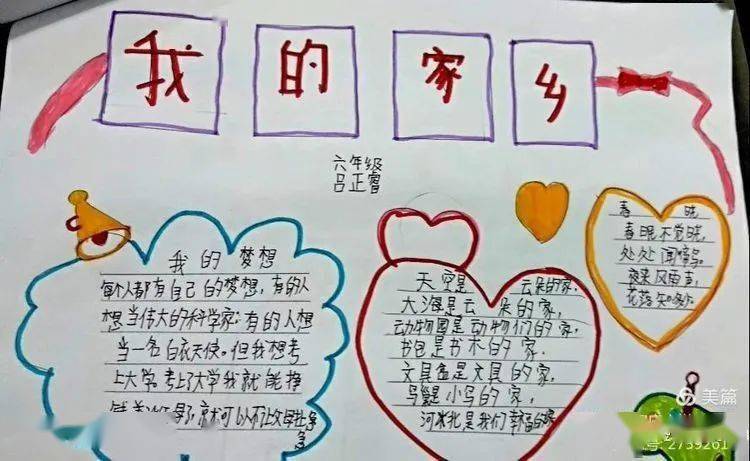 我的家乡
六年级
吕正睿
我的梦想
每个人都有自己的梦想,有的人
想当伟大的科学家;有的人想
当一名白衣天使。但我想考
上大学。考上了大学我就能挣
天空是云朵的家,
大海是云朵的家,
动物园是动物们的家,
书包是书本的家,
文具盒是文具的家,
鸟巢是小鸟的家,
河北是我们幸福的家
春晓
春眠不觉晓,
处处闻啼鸟。
夜来风雨声,
花落知多少
美篇
2739261